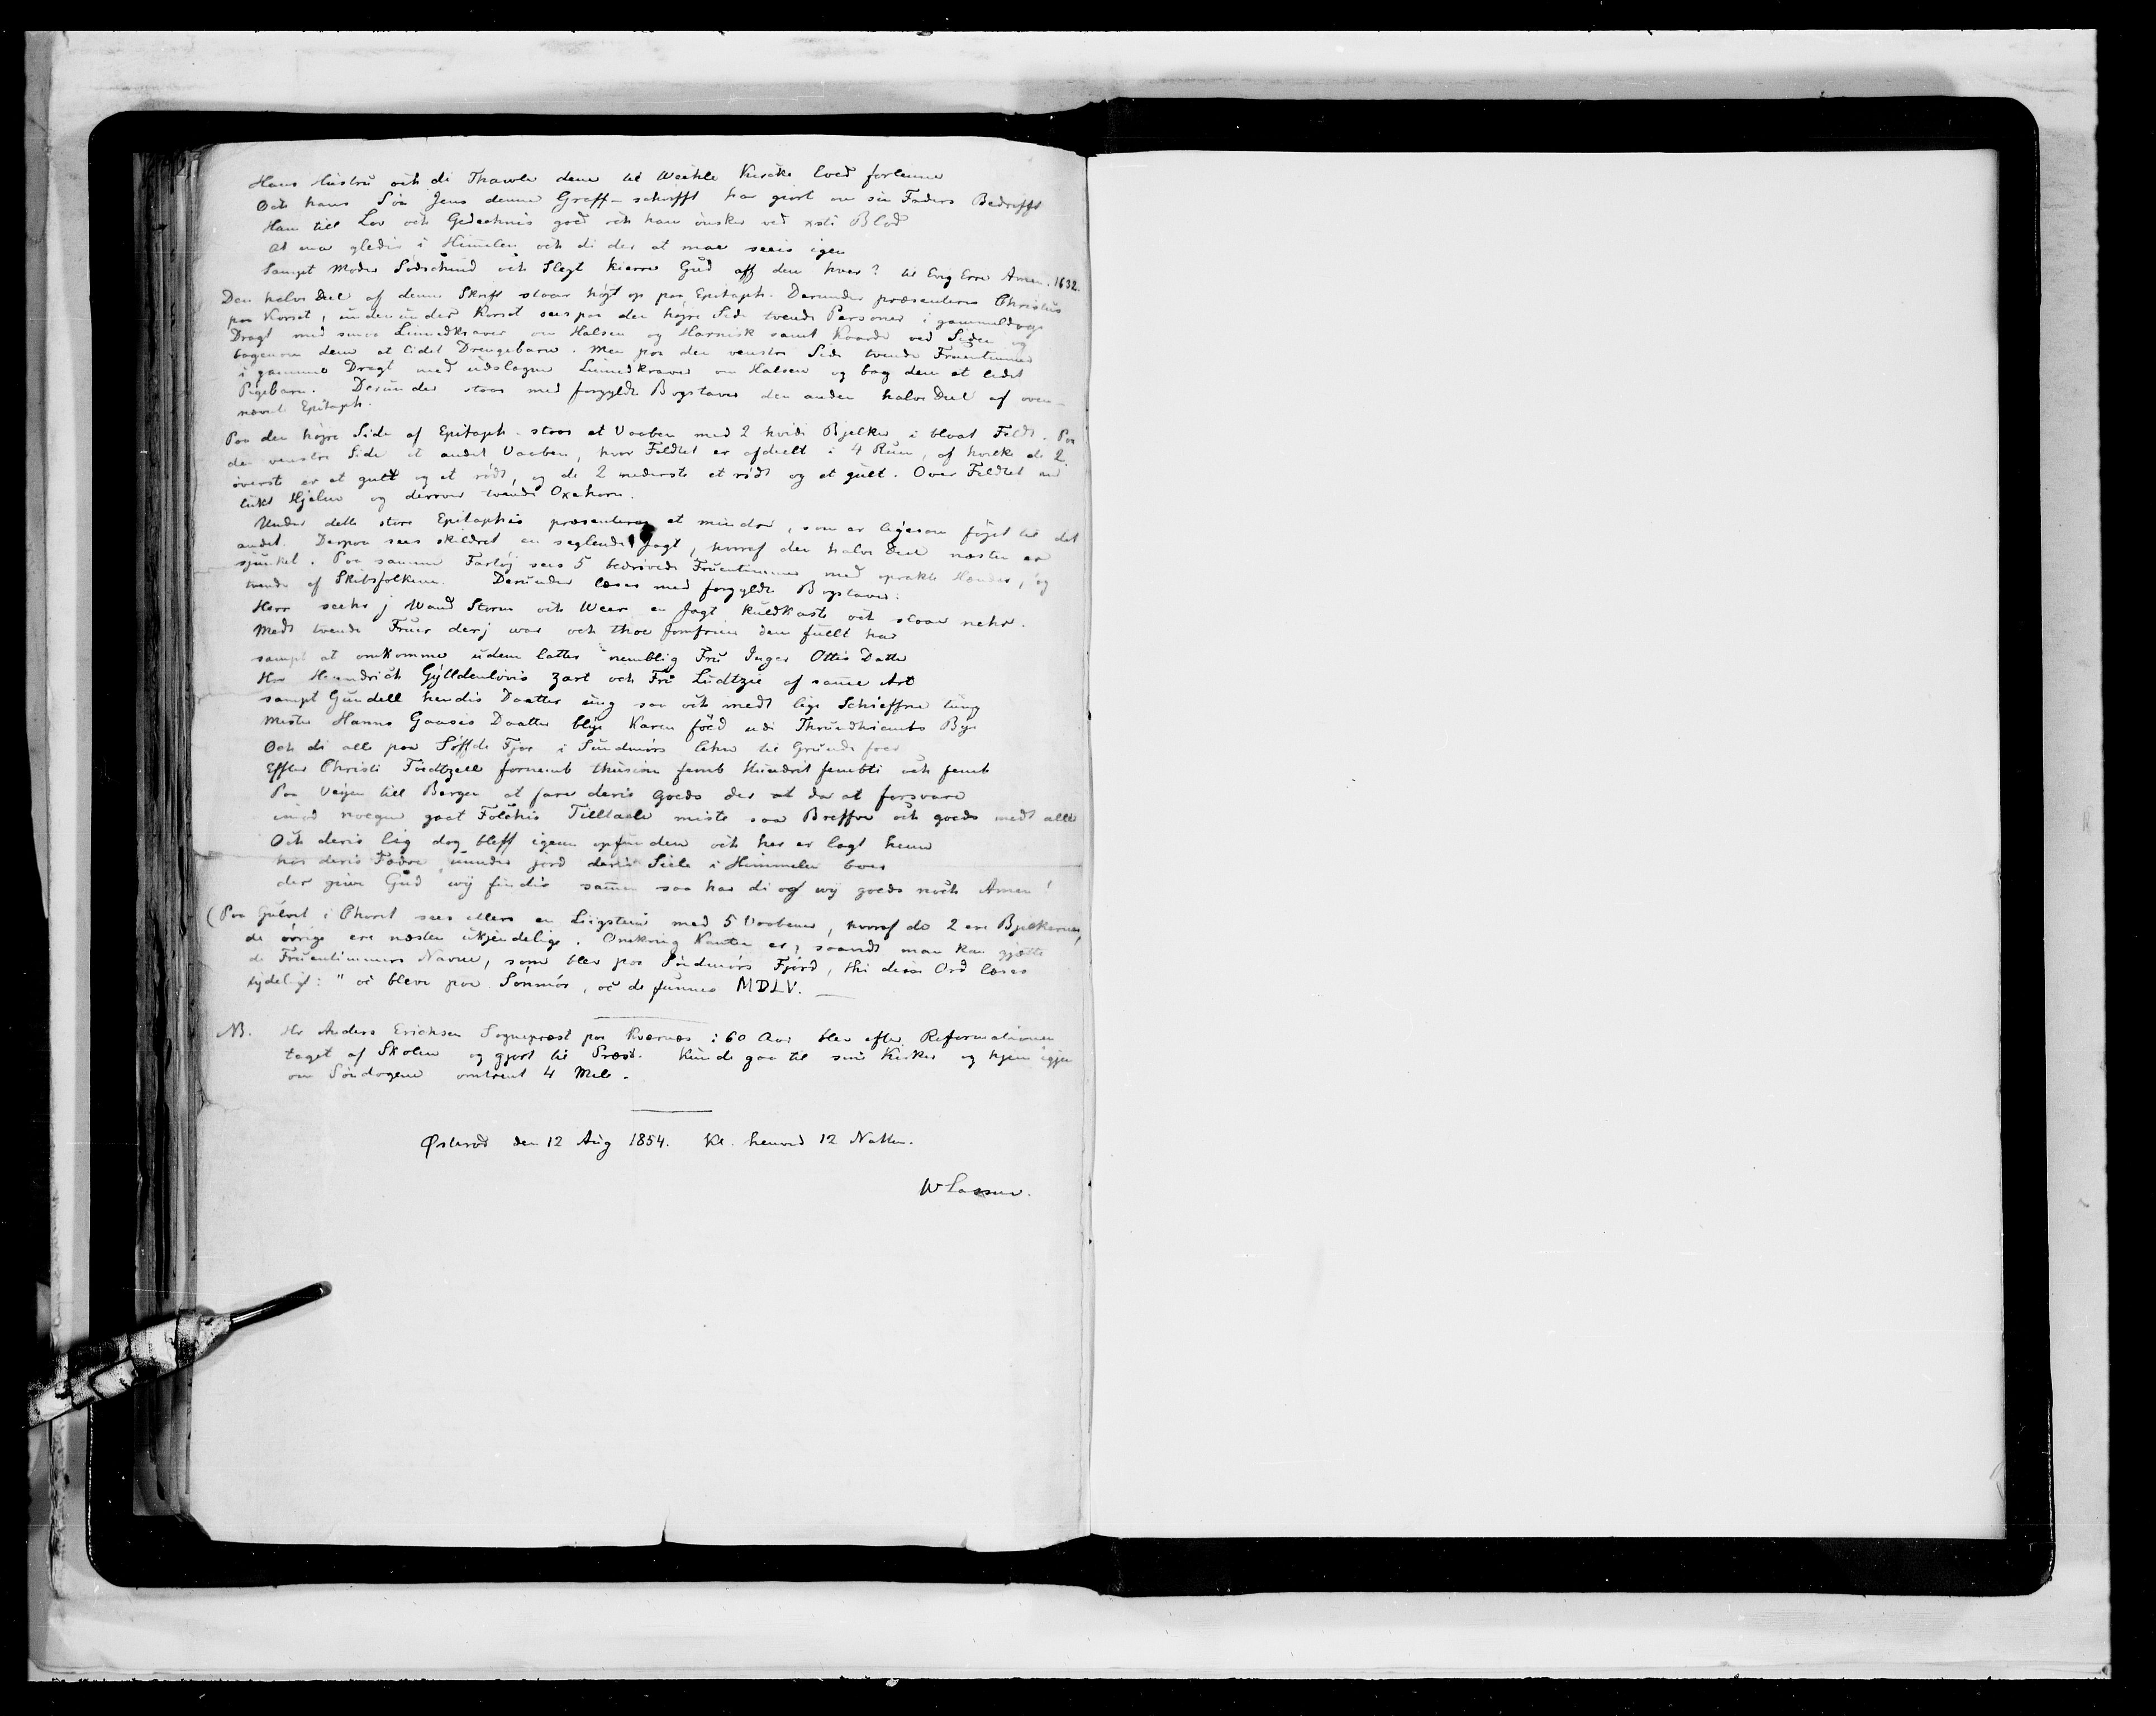 Hans Hustru och di Thawle dene til Weehle Kircke loed forlenne
Och hans Søn Jens denne Graff-schrifft har giort om sin Faders Bedrifft
Ham till Lov och Gedechnis goed och han ønsker ved xsti Blod
At maa gledis i Himmelen och di der at maae seeis igen
Sampt Moder Sødschind och Slegt kierre Gud aff den hver? til Evig Erre Amen. 1632.
Den halve Deel af denne Skrift staar højt op paa Epitaph. Derunder præsenteres Christus
paa Korset, undenunder Korset sees paa den højre Side tvende Personer i gammeldags
Dragt med smaa Linnedkraver om Halsen og Harnisk samt Kaarde ved Siden og
bagenom dem et lidet Drengebarn. Men paa den venstre Side tvende Fruentimmer
i gammel Dragt med udslagne Linnedkraver om Halsen og bag dem et lidet
Pigebarn. Derunder staar med forgyldte Bogstaver den anden halve Deel af oven-
nævnte Epitaph.
Paa den højre Side af Epitaph. staar et Vaaben med 2 hvide Bjelker i blaat Feldt. Paa
den venstre Side et andet Vaaben, hvor Feldtet er afdeelt i 4 Rum, af hvilke de 2
øverste er et gult og et rødt, og de 2 nederste et rødt og et gult. Over Feldtet en
lukt Hjelm og derover tvende Oxehorn.
Under dette store Epitaphio præsenteres et mindre, som er ligesom føjet til det
andet. Derpaa sees skildret en seglende Jagt, hvoraf den halve Deel næsten er
sjunket. Paa samme Fartøj sees 5 bedrøvede Fruentimmer med oprakte Hænder, og
tvende af Skibsfolkene. Derunder læses med forgyldte Bogstaver:
Herr seehs j Wand Storm och Weer en Jagt kuldkaste och slaar nehr.
Medt tvende Fruer derj war och thoe Jomfruer den fuellt har
sampt at omkomme udenn latter nemblig Fru Inger Ottis Datter
Her Henndrich Gÿlldenløvis zart och Fru Ludtzie af same Art
sampt Gundell hendis Daatter ung saa och medt lige Schieffne tung
Mester Hanns Gaasis Daatter blÿe Karen føed udi Thrundhiembs Bye
Och di alle paa Søffde Fjor i Sundmørs lehn til Grunde foer
Effter Christi Fødtzell fornemb thusinn femb Hundrit fembti och femb
Paa Veyen till Bergen at fare deris goeds der at dar at forsvare
imod noegen gaat Folchis Tilltaele miste saa Breffve och goeds medt alle
Och deris lig dog bleff igenn opfunden och her er lagt henn
hos deris Fædre unnder jord deris Siele i Himmelen boer
der give Gud wÿ findis samen saa har di og wÿ goeds noch Amen!
(Paa Gulvet i Choret sees ellers en Liigsteen med 5 Vaabener, hvoraf de 2 ere Bjelkernes,
de øvrige ere næsten ukjendelige. Omkring Kanten er, saavidt man kan gjætte
de Fruentimmers Navne, som blev paa Søndmørs Fjord, thi disse Ord læses
tydeligt: "oc bleve paa Sønmør, oc de funnes MDLV. —
NB. Hr Anders Erichsen Sognepræst paa Kværnæs i 60 Aar blev efter Reformationen
taget af Skolen og gjort til Præst. Kunde gaa til sine Kirker og hjem igjen
om Søndagene omtrent 4 Mile.
Østerød den 12 Aug 1854. Kl. henved 12 Natten.
W Lassen.